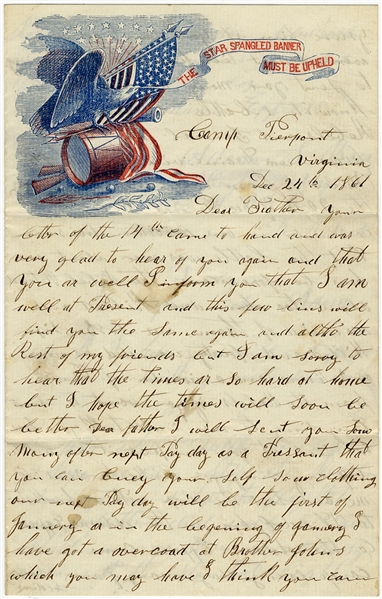 THE STAR SPANGLED BANNER
MUST BE UPHELD
Camp Pierpont
Virginia
Dec 24th 1861
Dear Brother your
letter of the 14th came to hand and was
very glad to hear of you again and that
you ar well I inform you that I am
well at Present and this few lins will
find you the same again and altho the
Rest of my friends but I am sorry to
hear that the times ar so hard at home
but I hope the times will soon be
better Dear father I will sent you som
Money after next Pay day as a Pressant that
you can buy your self som clothing
our next Pay day will be the first of
Jannery ar in the begening of Jannery I
have got a overcoat at Brother John's
which you may have I think you can